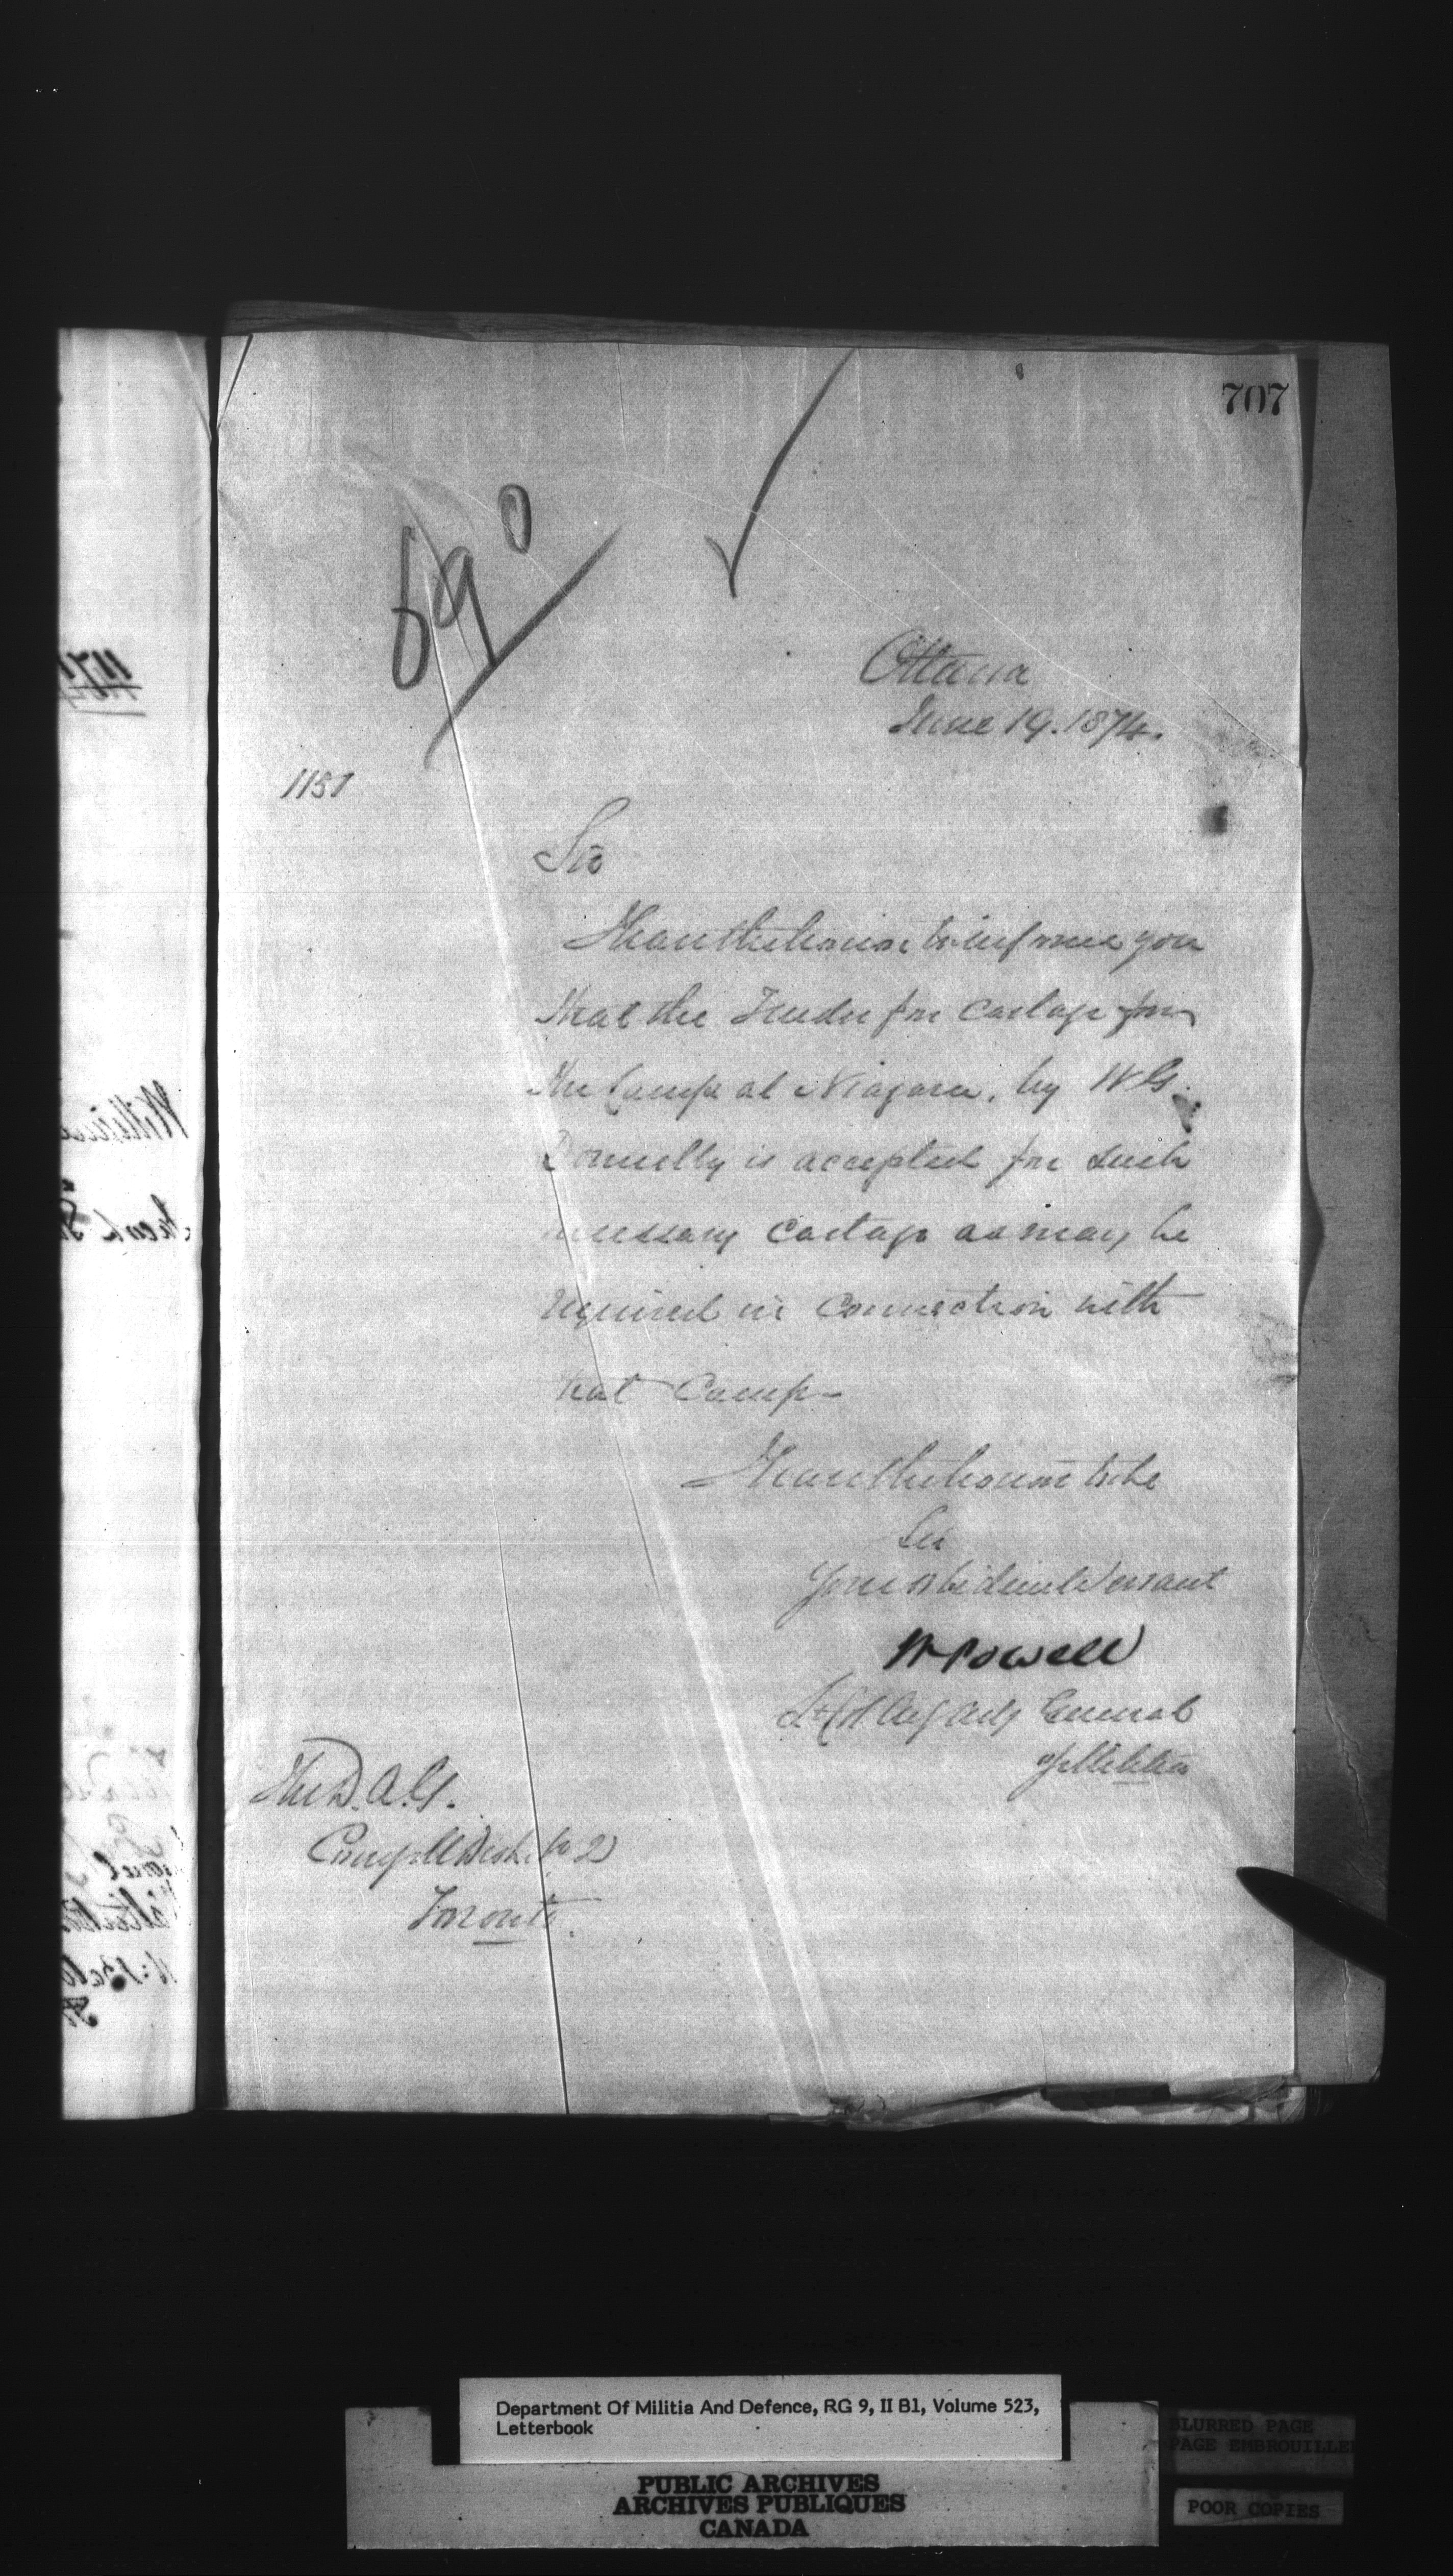 707
690
Ottawa
June 19. 1874.
1151
Sir
I have the honor to inform you
that the Tender for Cartage from
the Camp at Niagara, by W G.
Donnelly is accepted for such
necessary Cartage as may be
required in connection with
that Camp
I have the honor to be
Sir
Your obedient Servant
W Powell
Lt Col Adj General
of Militia
The D. A. G.
Comg M Dist. No 2
Toronto.
Department Of Militia And Defence, RG 9, II B1, Volume 523,
Letterbook
PUBLIC ARCHIVES
ARCHIVES PUBLIQUES
CANADA
BLURRED PAGE
PAGE EMBROUILLEE
POOR COPIES